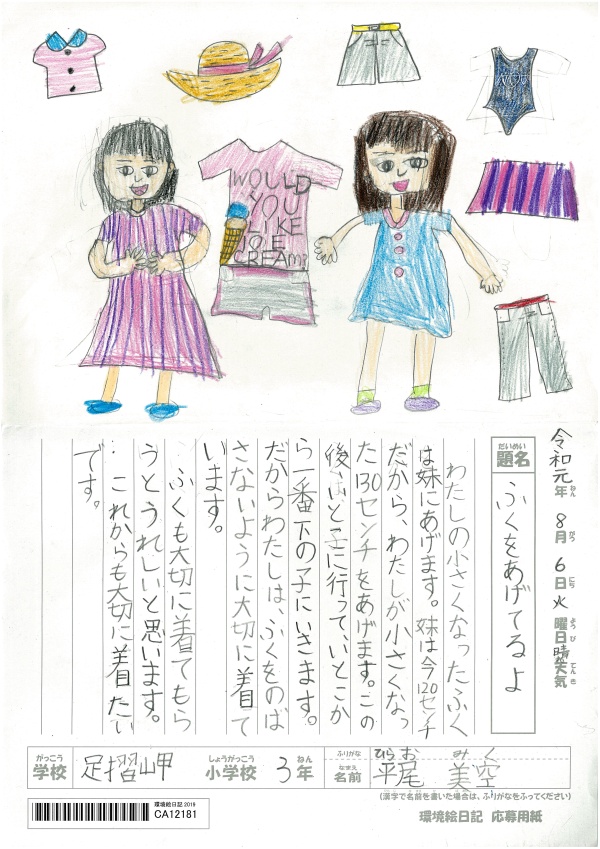 WOULD
YOU
LIKE
ICE
CREAM?
令和元年 8月 6日 火曜日 天気 晴
ねん がつ にち ようび てんき
だいめい
題名 ふくをあげてるよ
わたしの小さくなったふく
は妹にあげます。妹は今120センチ
だから、わたしが小さくなっ
た130センチをあげます。この
後いとこに行って、いとこか
ら一番下の子にいきます。
だからわたしは、ふくをのば
さないように大切に着て
います。
ふくも大切に着てもら
うとうれしいと思います。
これからも大切に着たい
です。
がっこう しょうがっこう ねん
学校 足摺岬 小学校 3年
ふりがな ひらお みく
なまえ
名前 平尾 美空
(漢字で名前を書いた場合は、ふりがなをふってください)
環境絵日記 2019
CA12181
環境絵日記 応募用紙